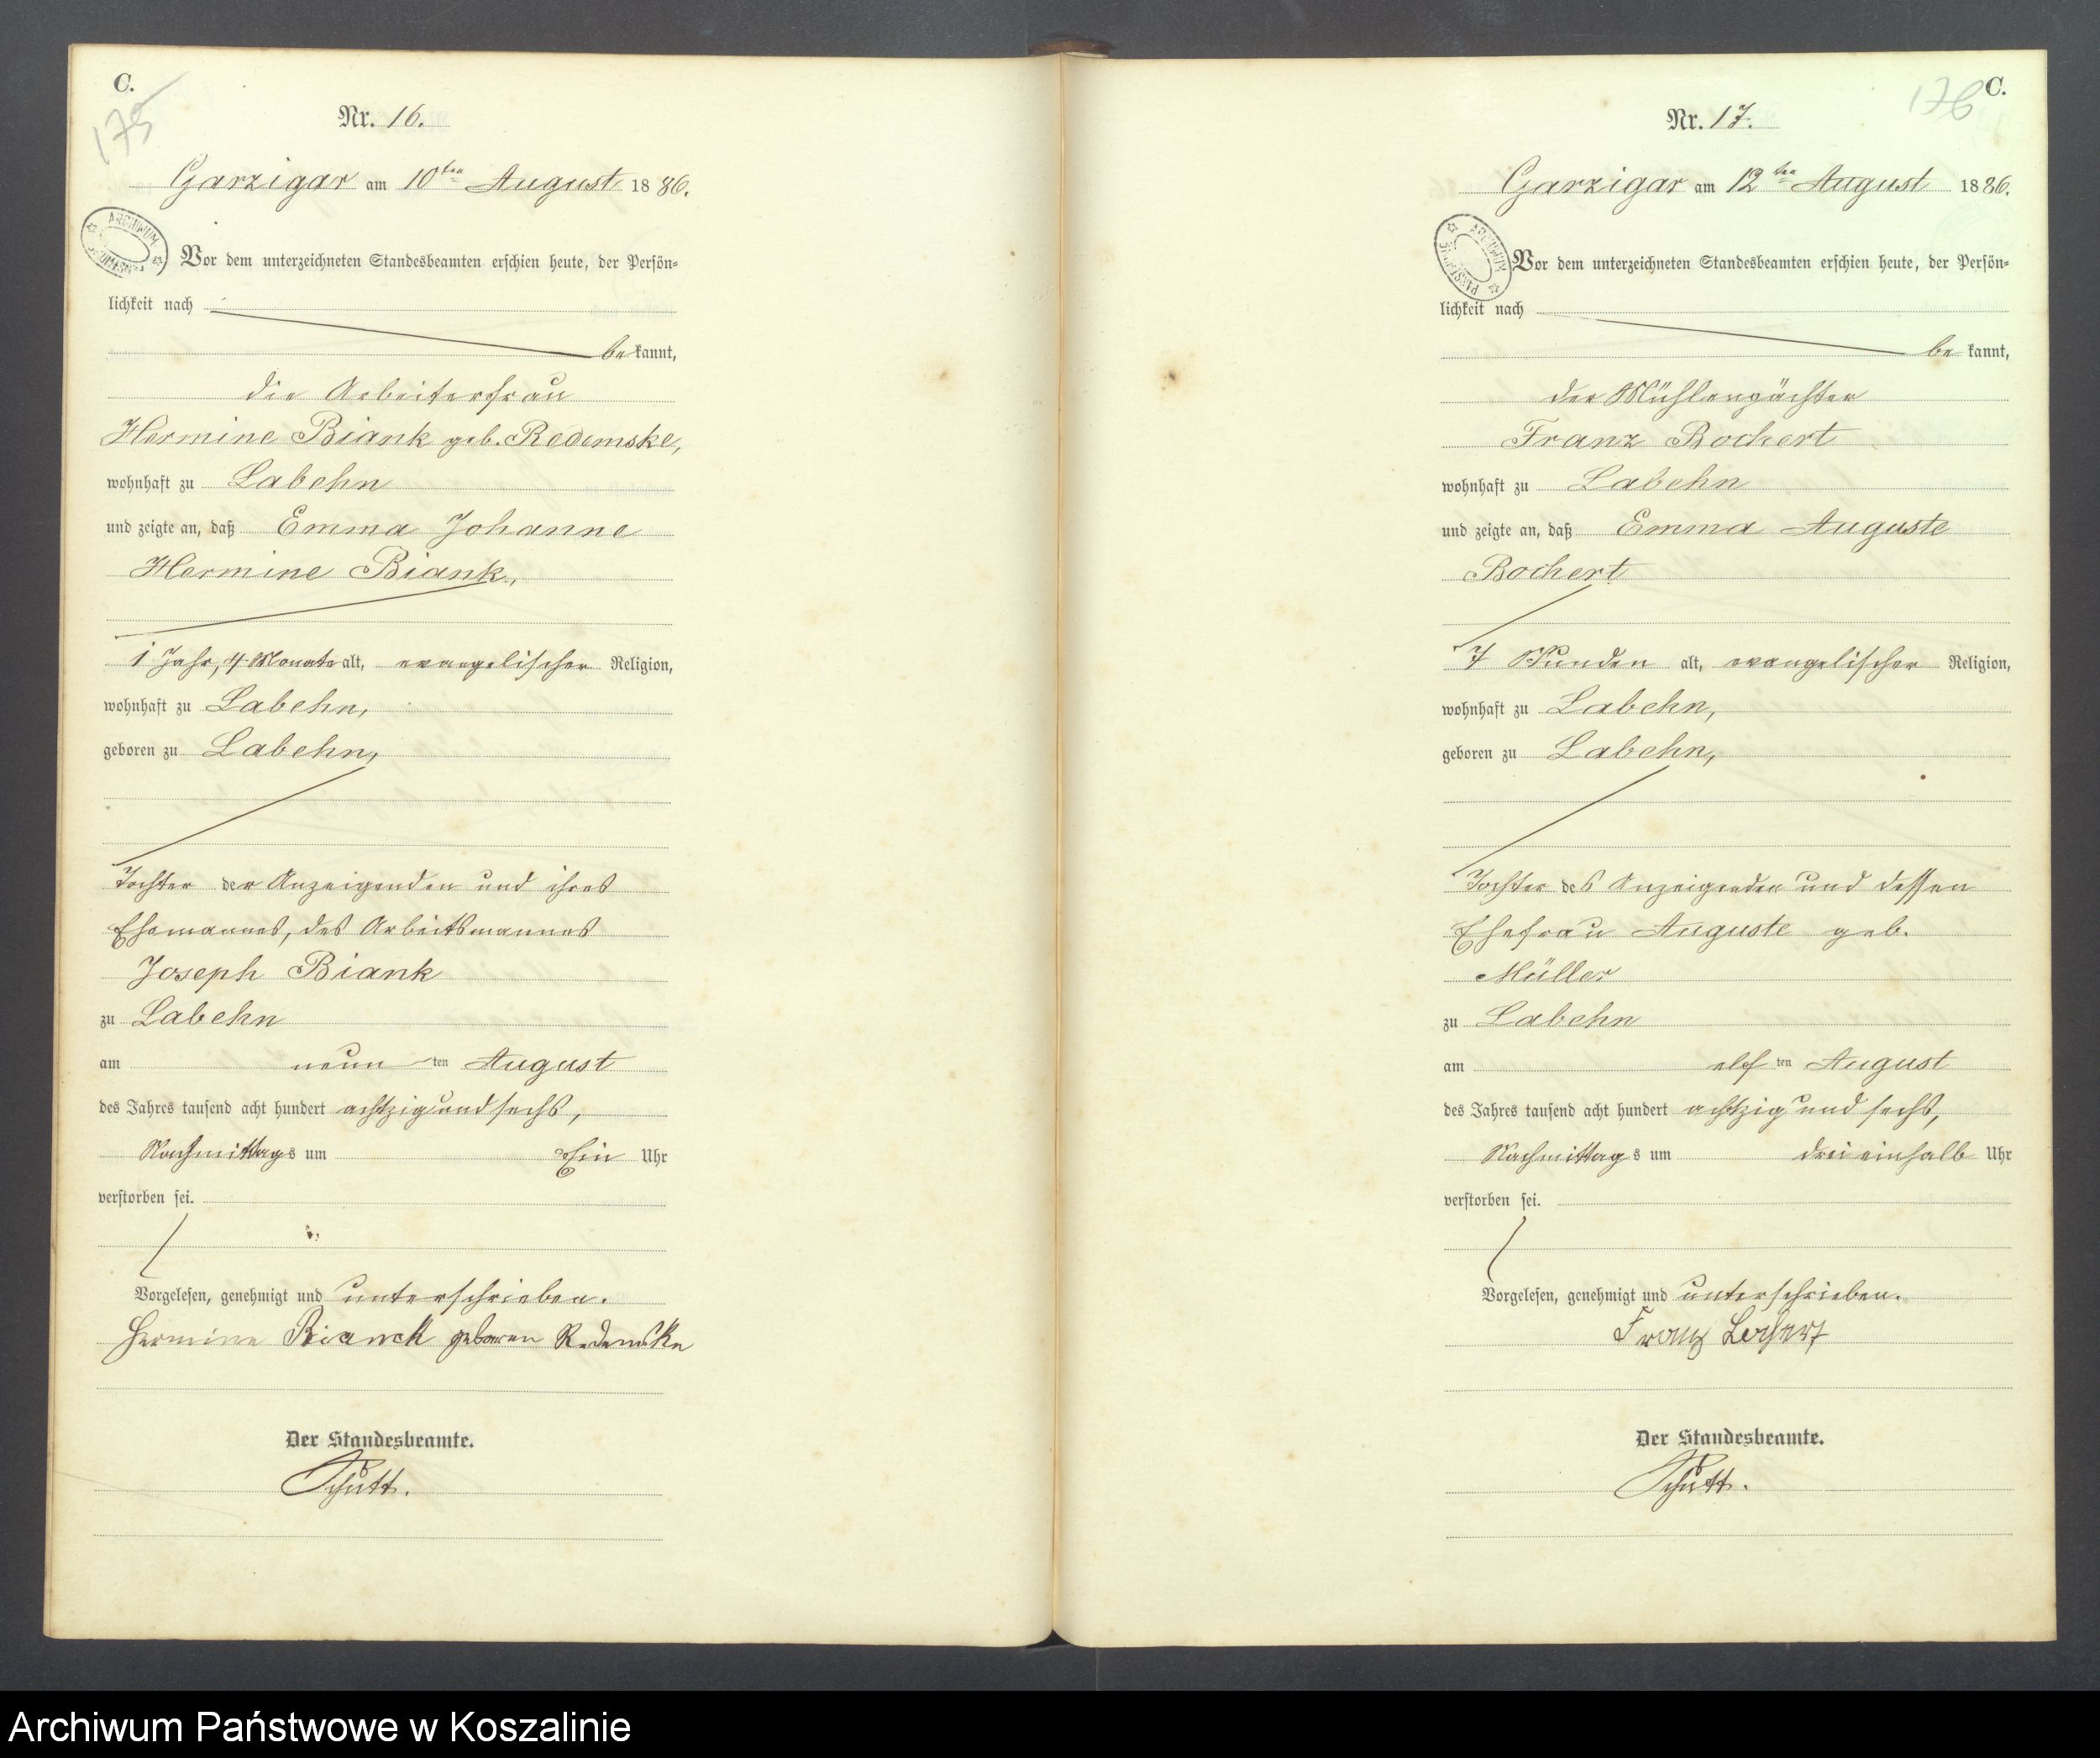 C.
175
Nr. 16.
Garzigar am 10ten August 1886.
ARCHIWUM
Vor dem unterzeichneten Standesbeamten erschien heute, der Persön-
lichkeit nach
bekannt,
die Arbeiterfrau
Hermine Biank geb. Redemske,
wohnhaft zu Labehn
und zeigte an, daß Emma Johanne
Hermine Biank,
1 Jahr, 4 Monate alt, evangelischer Religion,
wohnhaft zu Labehn,
geboren zu Labehn,
Tochter der Anzeigenden und ihres
Ehemannes, des Arbeitsmannes
Joseph Biank
zu Labehn
am neun ten August
des Jahres tausend acht hundert achtzig und sechs,
Nachmittags um Ein Uhr
verstorben sei.
Vorgelesen, genehmigt und unterschrieben.
Hermine Bianck geboren Redemske
Der Standesbeamte.
Schütt.
C.
176
Nr. 17.
Garzigar am 12ten August 1886.
ARCHIWUM
Vor dem unterzeichneten Standesbeamten erschien heute, der Persön-
lichkeit nach
bekannt,
der Mühlenpächter
Franz Bochert
wohnhaft zu Labehn
und zeigte an, daß Emma Auguste
Bochert
7 Stunden alt, evangelischer Religion,
wohnhaft zu Labehn,
geboren zu Labehn,
Tochter des Anzeigenden und dessen
Ehefrau Auguste geb.
Müller
zu Labehn
am elf ten August
des Jahres tausend acht hundert achtzig und sechs,
Nachmittags um drei einhalb Uhr
verstorben sei.
Vorgelesen, genehmigt und unterschrieben.
Franz Bochert
Der Standesbeamte.
Schütt.
Archiwum Państwowe w Koszalinie